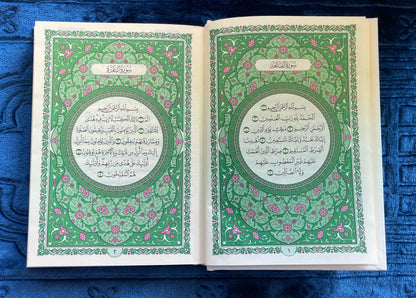 سُورَةُ الفَاتِحَةِ
بِسْمِ اللَّهِ الرَّحْمَٰنِ الرَّحِيمِ ١
الْحَمْدُ لِلَّهِ رَبِّ الْعَٰلَمِينَ ٢
الرَّحْمَٰنِ الرَّحِيمِ ٣ مَٰلِكِ يَوْمِ الدِّينِ ٤
إِيَّاكَ نَعْبُدُ وَإِيَّاكَ نَسْتَعِينُ ٥ اهْدِنَا
الصِّرَٰطَ الْمُسْتَقِيمَ ٦ صِرَٰطَ الَّذِينَ أَنْعَمْتَ
عَلَيْهِمْ غَيْرِ الْمَغْضُوبِ عَلَيْهِمْ
وَلَا الضَّالِّينَ ٧
١
سُورَةُ البَقَرَةِ
بِسْمِ اللَّهِ الرَّحْمَٰنِ الرَّحِيمِ
الٓمٓ ١ ذَٰلِكَ الْكِتَٰبُ لَا رَيْبَ فِيهِ هُدًى
لِلْمُتَّقِينَ ٢ الَّذِينَ يُؤْمِنُونَ بِالْغَيْبِ وَيُقِيمُونَ الصَّلَوٰةَ
وَمِمَّا رَزَقْنَٰهُمْ يُنفِقُونَ ٣ وَالَّذِينَ يُؤْمِنُونَ بِمَا أُنزِلَ
إِلَيْكَ وَمَا أُنزِلَ مِن قَبْلِكَ وَبِالْآخِرَةِ هُمْ يُوقِنُونَ ٤
أُولَٰئِكَ عَلَىٰ هُدًى مِّن رَّبِّهِمْ وَأُولَٰئِكَ
هُمُ الْمُفْلِحُونَ ٥
٢